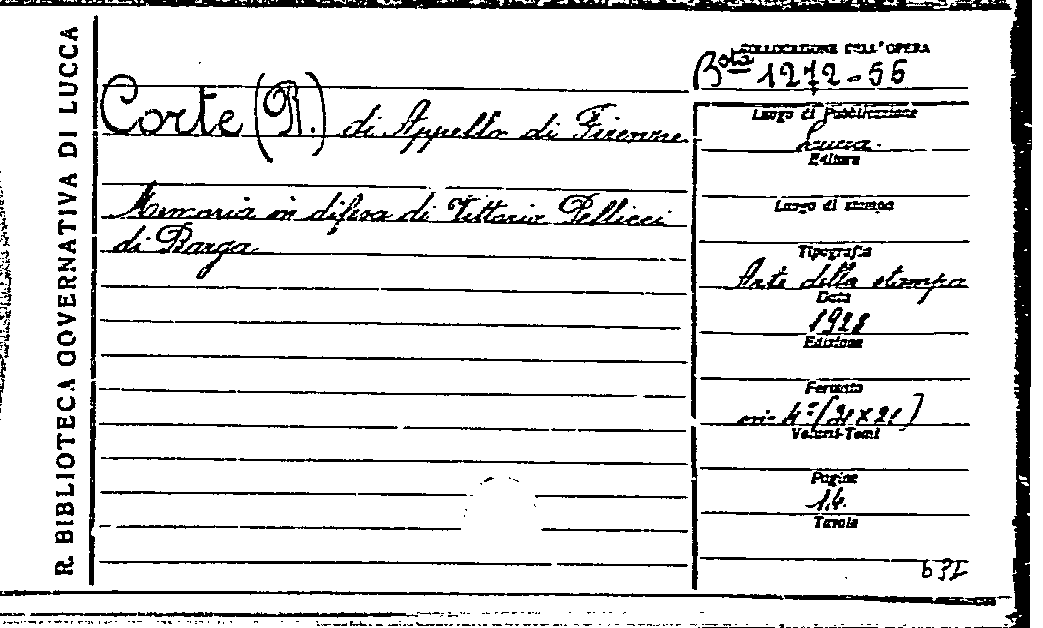 R. BIBLIOTECA GOVERNATIVA DI LUCCA
COLLOCAZIONE DELL'OPERA
Bta 1272-55
Corte (R.) di Appello di Firenze
Memoria in difesa di Vittorio Pellicci
di Barga
Luogo di Pubblicazione
Lucca.
Editore
Luogo di stampa
Tipografia
Arte della stampa
Data
1928
Edizione
Formato
in-4º
Volumi-Tomi
Pagine
14.
Tavole